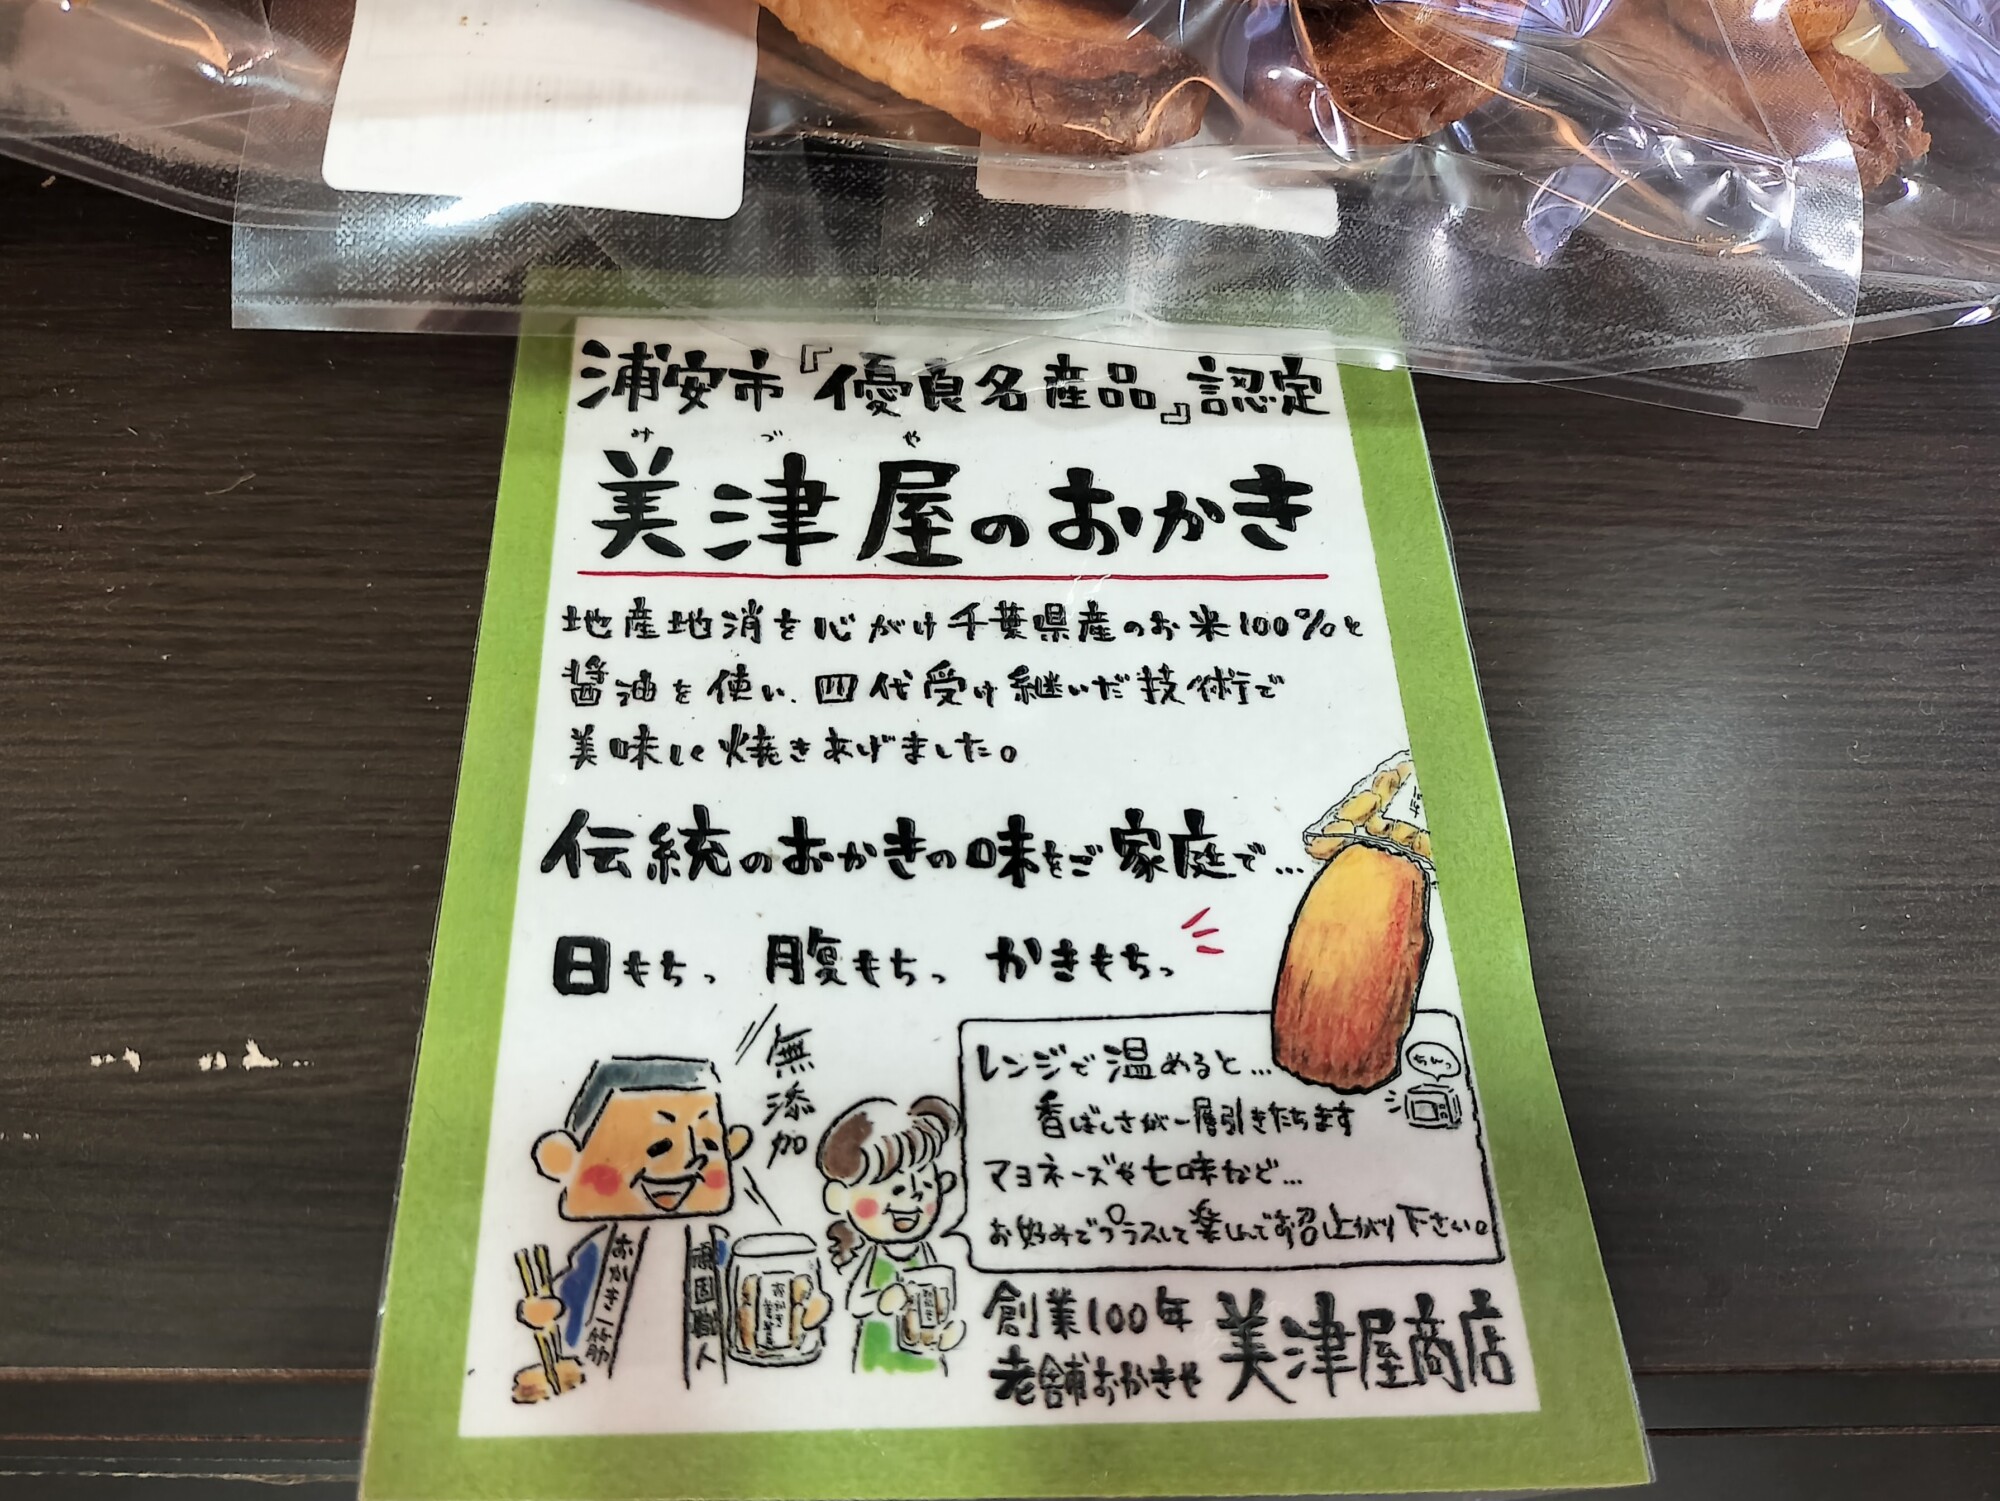 浦安市『優良名産品』認定
みづや
美津屋のおかき
地産地消を心がけ千葉県産のお米100%と
醤油を使い、四代受け継いだ技術で
美味しく焼きあげました。
伝統のおかきの味をご家庭で…
日もちっ 腹もちっ かきもちっ
無添加
レンジで温めると…
ちんっ
香ばしさが一層引きたちます
マヨネーズや七味など…
お好みでプラスして楽しんでお召し上がり下さい。
おかき一筋
頑固職人
創業100年
老舗おかきや
美津屋商店